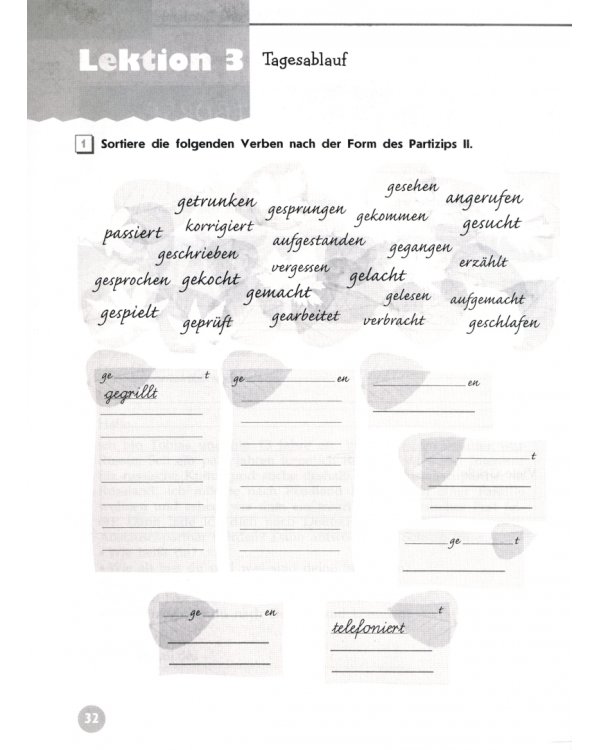 Lektion 3 Tagesablauf
1 Sortiere die folgenden Verben nach der Form des Partizips II.
gesehen
getrunken gesprungen angerufen
passiert korrigiert gekommen gesucht
geschrieben aufgestanden gegangen
gesprochen gekocht vergessen gelacht erzählt
gemacht gelesen aufgemacht
gespielt geprüft gearbeitet verbracht geschlafen
ge____________t ge____________en ____________en
gegrillt
____________t
______ge______t
____ge________en ____________t
telefoniert
32